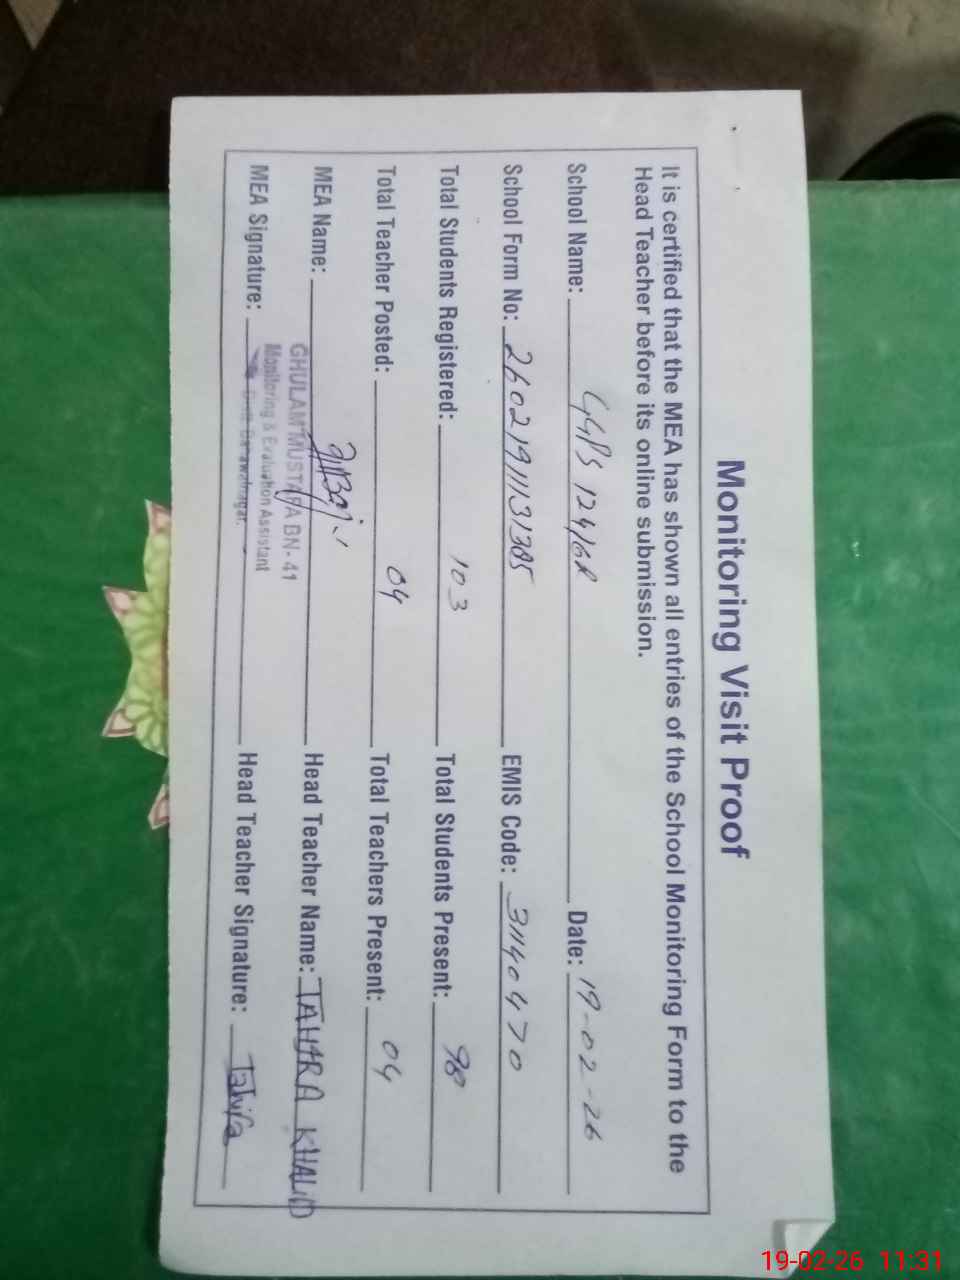 Monitoring Visit Proof
It is certified that the MEA has shown all entries of the School Monitoring Form to the
Head Teacher before its online submission.
School Name: GGPS 124/6R Date: 19-02-26
School Form No: EMIS Code: 31140470
Total Students Registered: 103 Total Students Present: 98
Total Teacher Posted: 04 Total Teachers Present: 04
MEA Name: Head Teacher Name: TAHIRA KHALID
GHULAM MUSTAFA BN-41
Monitoring & Evaluation Assistant
MEA Signature: Head Teacher Signature: Tahira
Bahawalnagar.
19-02-26 11:31